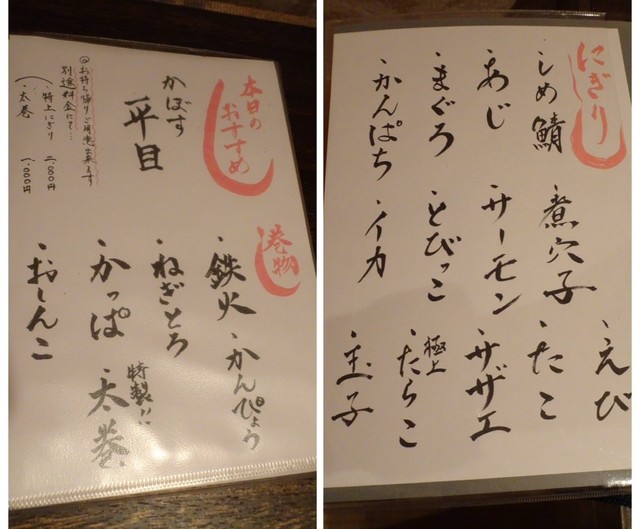 本日の
おすすめ
かぼす
平目
◎お持ち帰りご用意出来ます
別途料金にて…
・特上にぎり 二.八〇〇円
・太巻 一.〇〇〇円
巻物
・鉄火
・かんぴょう
・ねぎとろ
・かっぱ
特製!!
・太巻
・おしんこ
にぎり
・しめ鯖
・あじ
・まぐろ
・かんぱち
・煮穴子
・サーモン
・とびっこ
・イカ
・えび
・たこ
・サザエ
極上
・たらこ
・玉子